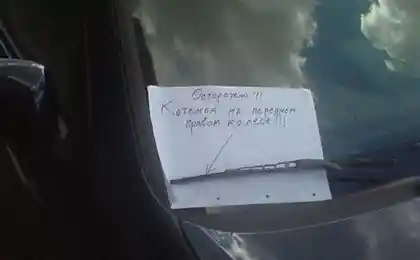 Осторожно !!!
Котёнок на переднем
правом колесе !!!